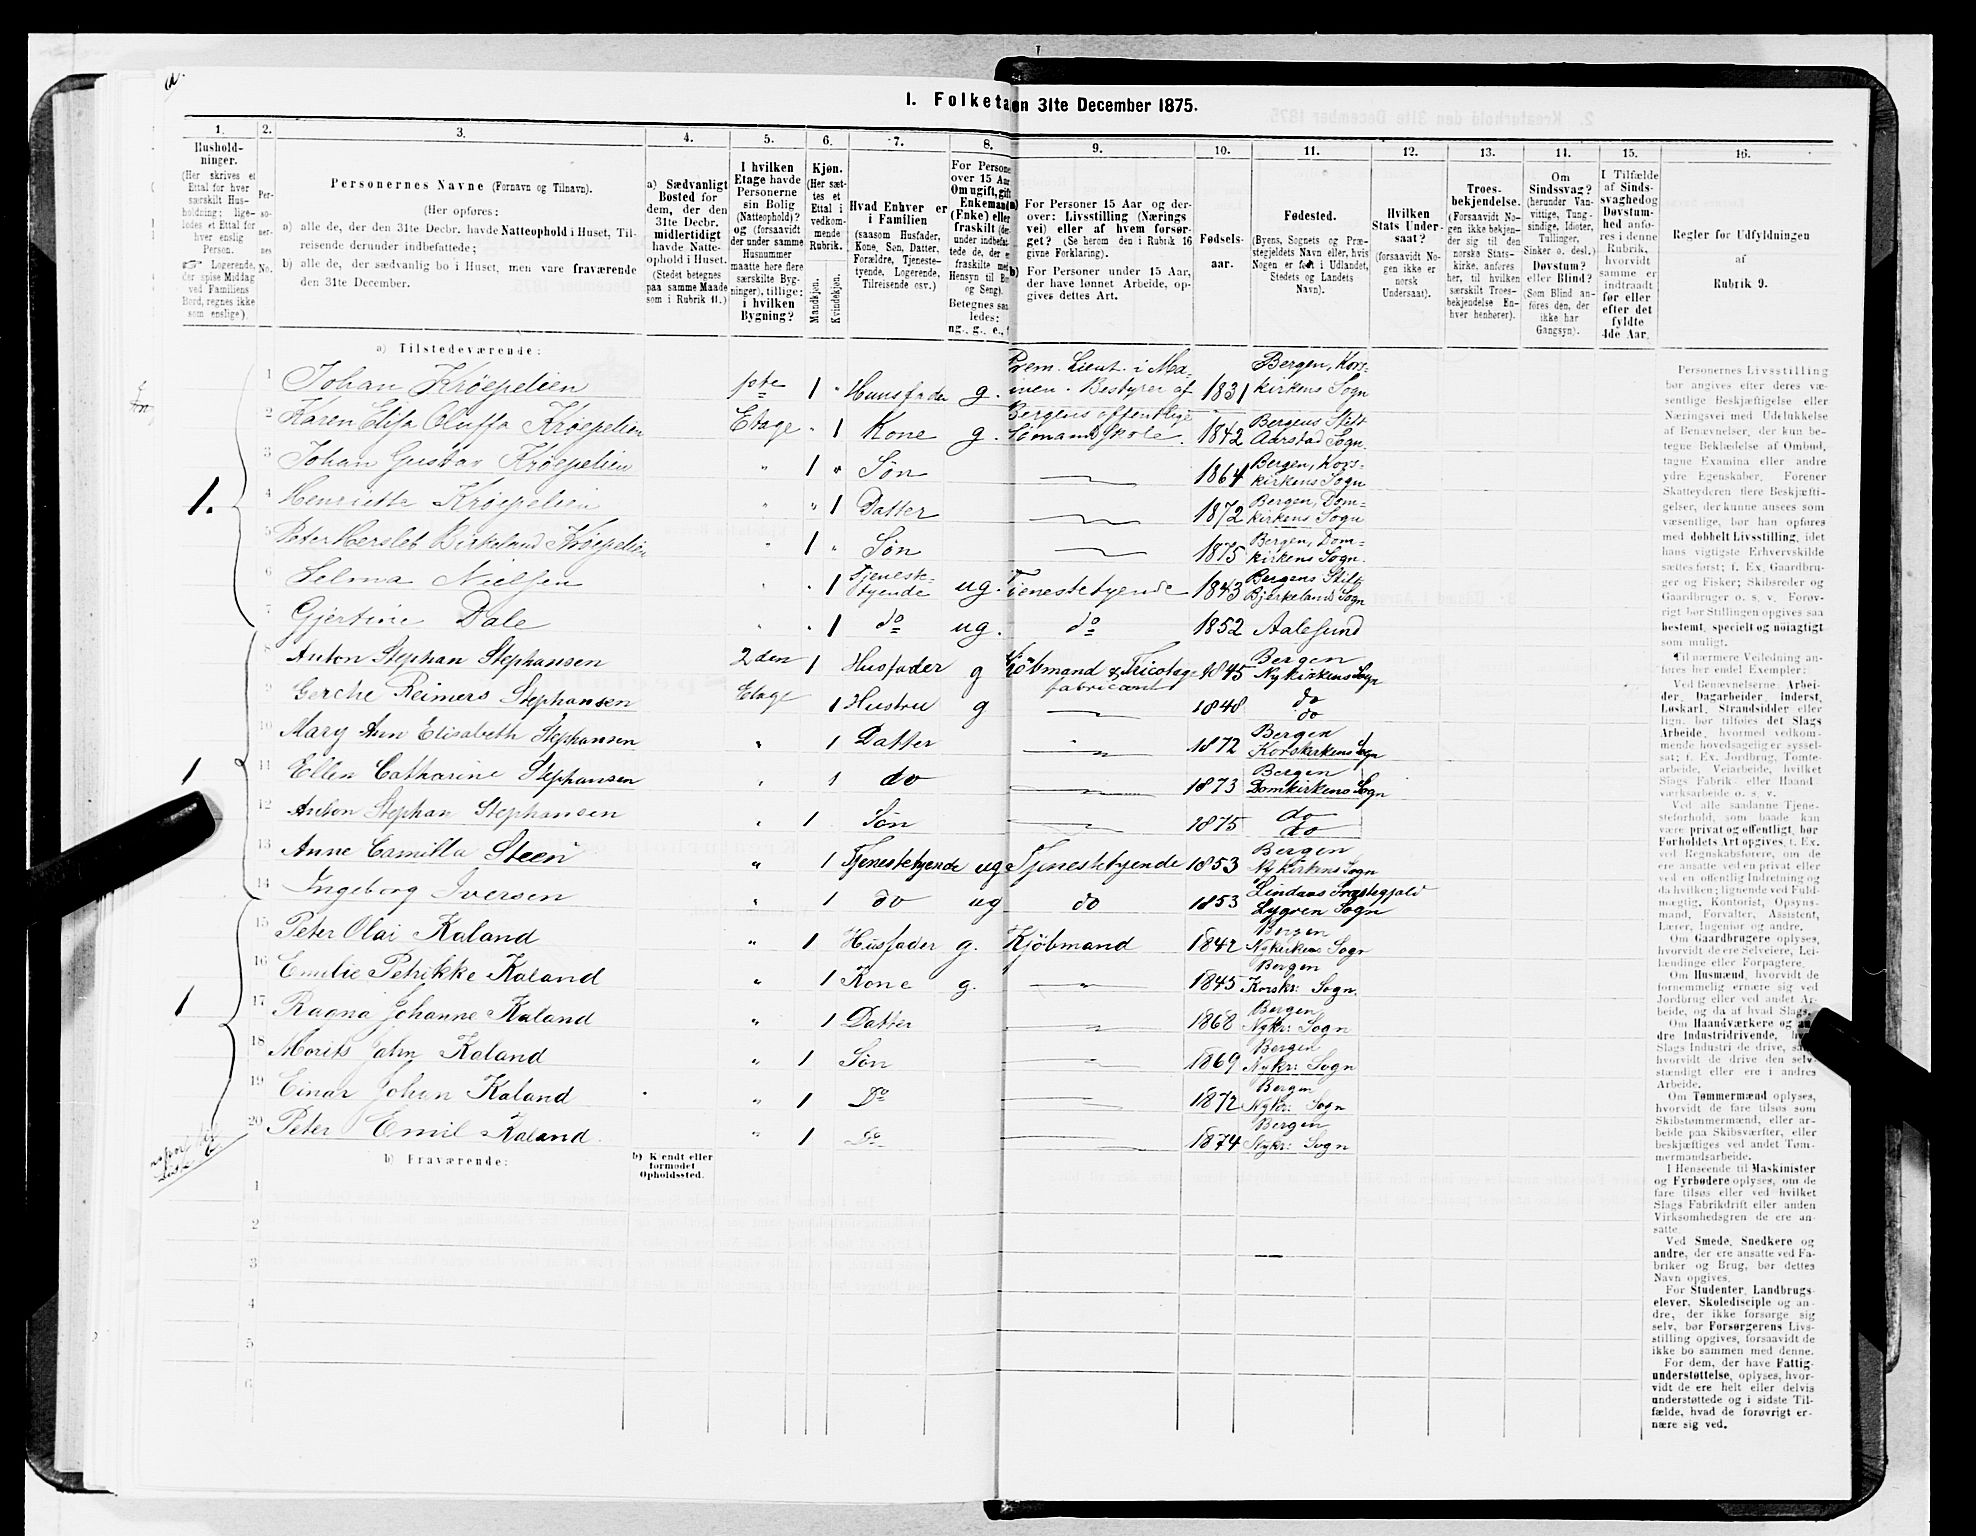 I. Folketa en 31te December 1875.
1. Hushold-ninger. (Her skrives et Ettal for hver særskilt Hus-holdning; lige-ledes et Ettal for hver enslig Person. Logerende, der spise Middag ved Familiens Bord, regnes ikke som enslige).
2. Per-so-ner-nes No.
3. Personernes Navne (Fornavn og Tilnavn). (Her opføres: a) alle de, der den 31te Decbr. havde Natteophold i Huset, Til-reisende derunder indbefattede; b) alle de, der sædvanlig bo i Huset, men vare fraværende den 31te December.
4. a) Sædvanligt Bosted for dem, der den 31te Decbr. midlertidigt havde Natte-ophold i Huset. (Stedet betegnes paa samme Maade som i Rubrik 11.)
5. I hvilken Etage havde Personerne sin Bolig (Natteophold)? og (forsaavidt der under samme Husnummer maatte høre flere særskilte Byg-ninger), tillige: i hvilken Bygning?
6. Kjøn. (Her sæt-tes et Ettal i vedkom-mende Rubrik. Mandkjøn. Kvindekjøn.
7. Hvad Enhver er i Familien (saasom Husfader, Kone, Søn, Datter, Forældre, Tjeneste-tyende, Logerende, Tilreisende osv.)
8. For Persone over 15 Aar Om ugift, gift Enkemand (Enke) eller fraskilt (der-under indbefat-tede de, der er fraskilte med Hensyn til Bo og Seng). Betegnes saa-ledes: ug., g., e.,
9. For Personer 15 Aar og der-over: Livsstilling (Nærings vei) eller af hvem forsør-get? (Se herom den i Rubrik 16 givne Forklaring). For Personer under 15 Aar, der have lønnet Arbeide, op-gives dettes Art.
10. Fødsels-aar.
11. Fødested. (Byens, Sognets og Præ-stegjeldets Navn eller, hvis Nogen er født i Udlandet, Stedets og Landets Navn).
12. Hvilken Stats Under-saat? (forsaavidt No-gen ikke er norsk Undersaat).
13. Troes-bekjendelse. (Forsaavidt No-gen ikke bekjen-der sig til den norske Stats-kirke, anføres her, til hvilken særskilt Troes-bekjendelse En-hver henhører).
14. Om Sindssvag? (herunder Van-vittige, Tung-sindige, Idioter, Tullinger, Sinker o. desl.) Døvstum? eller Blind? (Som Blind an-føres den, der ikke har Gangsyn).
15. I Tilfælde af Sinds-svaghed og Døvstum-hed anfø-res i denne Rubrik, hvorvidt samme er indtraadt før eller efter det fyldte 4de Aar.
16. Regler for Udfyldningen af Rubrik 9.
a) Tilstedeværende:
1 Johan Krøepelien 1ste 1 " Huusfader g. Prem. Lieut. i Ma-inen. Bestyrer af 1831 Bergen, Kors-kirkens Sogn
2 Karen Elisa Oluffa Krøepelien Etage " 1 Kone g. Bergens offentlige Sømandsskole. 1842 Bergens Stift Aarstad Sogn.
3 Johan Gustav Krøepelien " 1 " Søn 1864 Bergen, Kors-kirkens Sogn
1.
4 Henriette Krøepelien " " 1 Datter 1872 Bergen, Dom-kirkens Sogn
5 Peter Herslet Birkeland Krøepelien " 1 " Søn 1875 Bergen, Dom-kirkens Sogn.
6 Selma Nielsen " " 1 Tjeneste-tyende ug. Tjenestetyende 1843 Bergens Stift Bjerkelands Sogn
7 Gjertine Dale " " 1 do ug. do 1852 Aalesund
8 Anton Stephan Stephansen 2den 1 Husfader g Kjöbmand & Tricotage fabricant 1845 Bergen Nykirkens Sogn
9 Gerche Reimers Stephansen Etage 1 Hustru g 1848 do do
10 Mary Ann Elisabeth Stephansen " 1 Datter 1872 Bergen Korskirkens Sogn
1
11 Ellen Catharine Stephansen " 1 do 1873 Bergen Domkirkens Sogn
12 Anton Stephan Stephansen " 1 Søn 1875 do do
13 Anne Camilla Steen " 1 Tjenestetyende ug Tjenestetyende 1853 Bergen Nykirkens Sogn
14 Ingeborg Iversen " 1 do ug do 1853 Lindaas Præstegjæld Lygren Sogn
15 Peter Olai Kaland " 1 Husfader g. Kjöbmand 1842 Bergen Nykirkens Sogn
16 Emilie Petrikke Kaland " 1 Kone g. " 1845 Bergen Korskr: Sogn.
1
17 Ragna Johanne Kaland " 1 Datter 1868 Bergen Nykr: Sogn
18 Morits John Kaland " 1 Søn 1869 Bergen Nykr: Sogn
19 Einar Johan Kaland " 1 Do 1872 Bergen Nykr: Sogn
20 Peter Emil Kaland. " 1 Do 1874 Bergen Nykr: Sogn
b) Fraværende:
b) Kjendt eller formodet Opholdssted.
1
2
3
4
5
6
Personernes Livsstilling
bør angives efter deres væ-
sentlige Beskjæftigelse eller
Næringsvei med Udelukkelse
af Benævnelser, der kun be-
tegne Beklædelse af Ombud,
tagne Examina eller andre
ydre Egenskaber. Forener
Skatteyderen flere Beskjæfti-
gelser, der kunne ansees som
væsentlige, bør han opføres
med dobbelt Livsstilling, idet
hans vigtigste Erhvervskilde
sættes først; f. Ex. Gaardbru-
ger og Fisker; Skibsreder og
Gaardbruger o. s. v. Forøv-
rigt bør Stillingen opgives saa
bestemt, specielt og nøiagtigt
som muligt.
Til nærmere Veiledning an-
føres her endel Exempler:
Ved Benævnelserne: Arbei-
der, Dagarbeider, Inderst,
Løskarl, Strandsidder eller
lign. bør tilføies det Slags
Arbeide, hvormed vedkom-
mende hovedsagelig er syssel-
sat; f. Ex. Jordbrug, Tomte-
arbeide, Veiarbeide, hvilket
Slags Fabrik- eller Haand-
værksarbeide o. s. v.
Ved alle saadanne Tjene-
steforhold, som baade kan
være privat og offentligt, bør
Forholdets Art opgives, f. Ex.
ved Regnskabsførere, om de
ere ansatte ved en privat eller
ved en offentlig Indretning og
da hvilken; lignende ved Fuld-
mægtig, Kontorist, Opsyns-
mand, Forvalter, Assistent,
Lærer, Ingeniør og andre.
Om Gaardbrugere oplyses,
hvorvidt de ere Selveiere, Lei-
lændinge eller Forpagtere.
Om Husmænd, hvorvidt de
fornemmelig ernære sig ved
Jordbrug eller ved andet Ar-
beide, og da af hvad Slags.
Om Haandværkere og an-
dre Industridrivende, h
Slags Industri de drive, sa
hvorvidt de drive den selv-
stændigt eller ere i andres
Arbeide.
Om Tømmermænd oplyses,
hvorvidt de fare tilsøs som
Skibstømmermænd, eller ar-
beide paa Skibsværfter, eller
beskjæftiges ved andet Tøm-
mermandsarbeide.
I Henseende til Maskinister
og Fyrbødere oplyses, om de
fare tilsøs eller ved hvilket
Slags Fabrikdrift eller anden
Virksomhedsgren de ere an-
satte.
Ved Smede, Snedkere og
andre, der ere ansatte ved Fa-
briker og Brug, bør dettes
Navn opgives.
For Studenter, Landbrugs-
elever, Skoledisciple og an-
dre, der ikke forsørge sig
selv, bør Forsørgerens Livs-
stilling opgives, forsaavidt de
ikke bo sammen med denne.
For dem, der have Fattig-
understøttelse, oplyses, hvor-
vidt de ere helt eller delvis
understøttede og i sidste Til-
fælde, hvad de forøvrigt er-
nære sig ved.